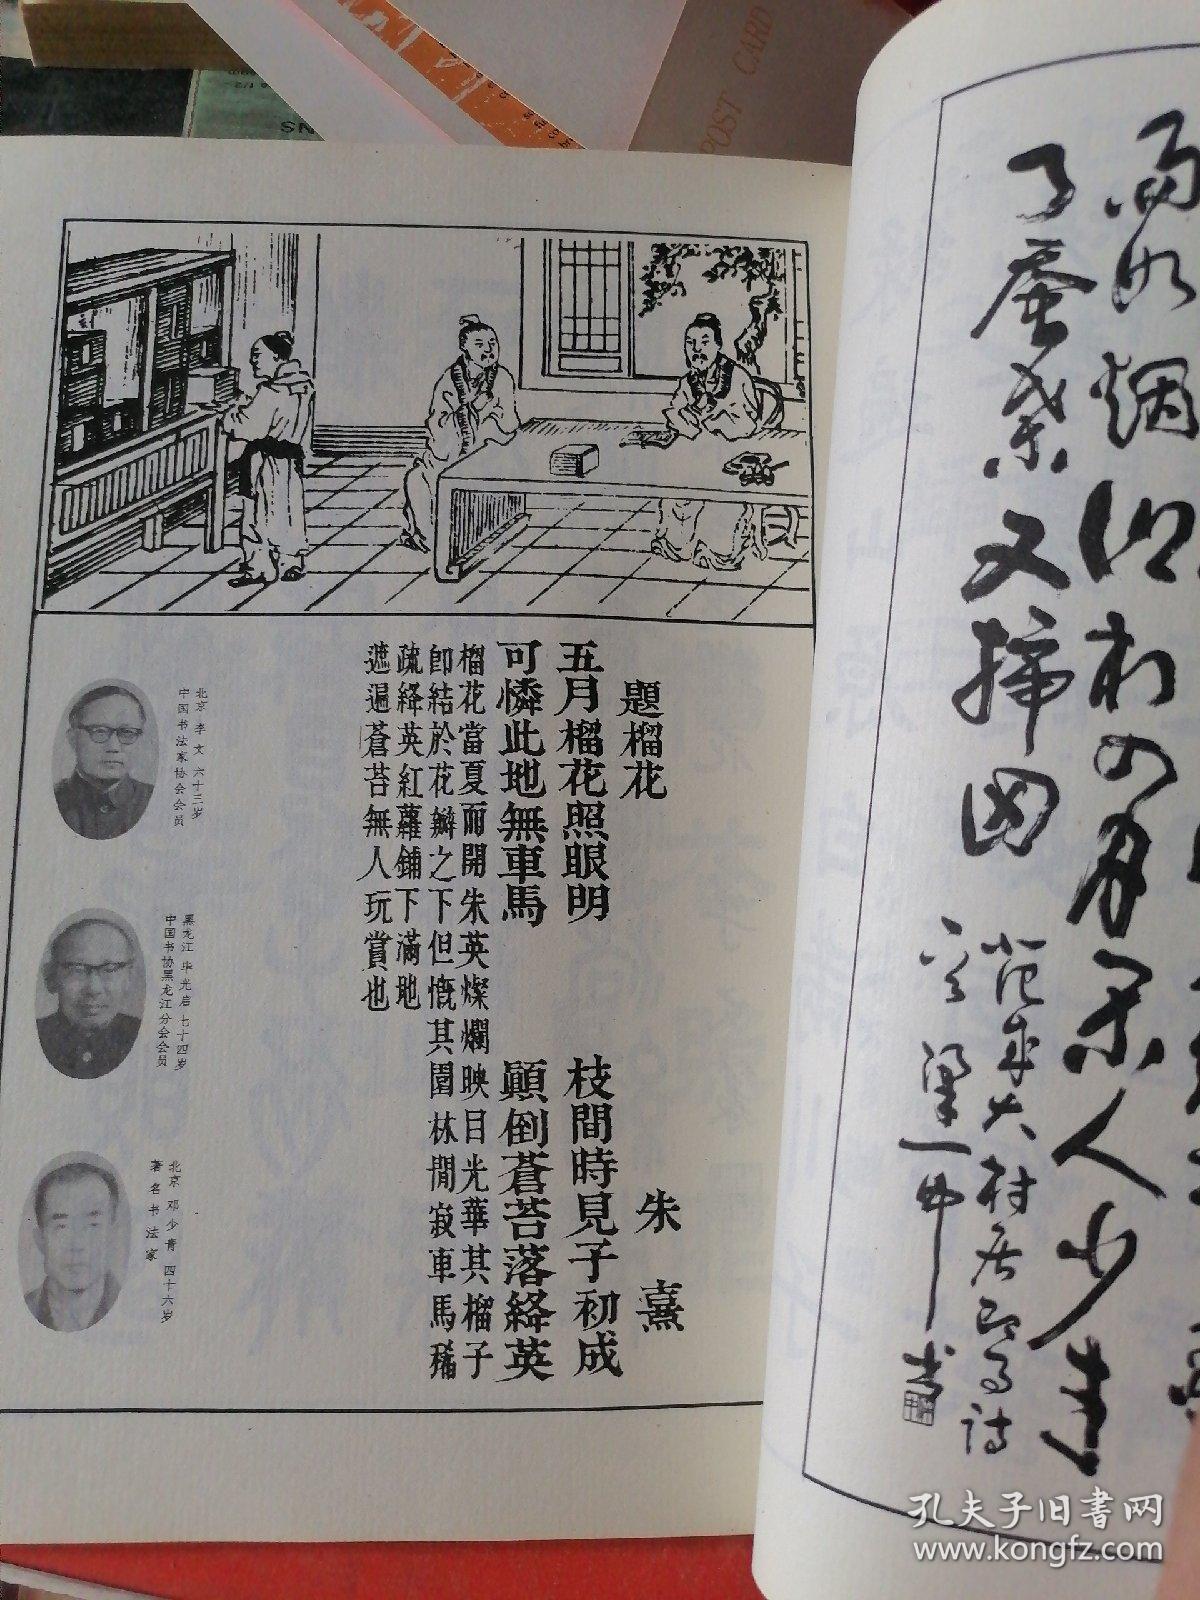 POST CARD
題榴花
朱熹
五月榴花照眼明
枝間時見子初成
可憐此地無車馬
顛倒蒼苔落絳英
榴花當夏而開朱英燦爛映目光華其榴子
卽結於花瓣之下但慨其園林閒寂車馬稀
疏絳英紅蘿鋪下滿地
遮遍蒼苔無人玩賞也
北京 李文 六十三岁
中国书法家协会会员
黑龙江 毕光启 七十四岁
中国书协黑龙江分会会员
北京 邓少青 四十六岁
著名书法家
人少
了蚕桑又插田
范成大村居即事诗
孔夫子旧书网
www.kongfz.com